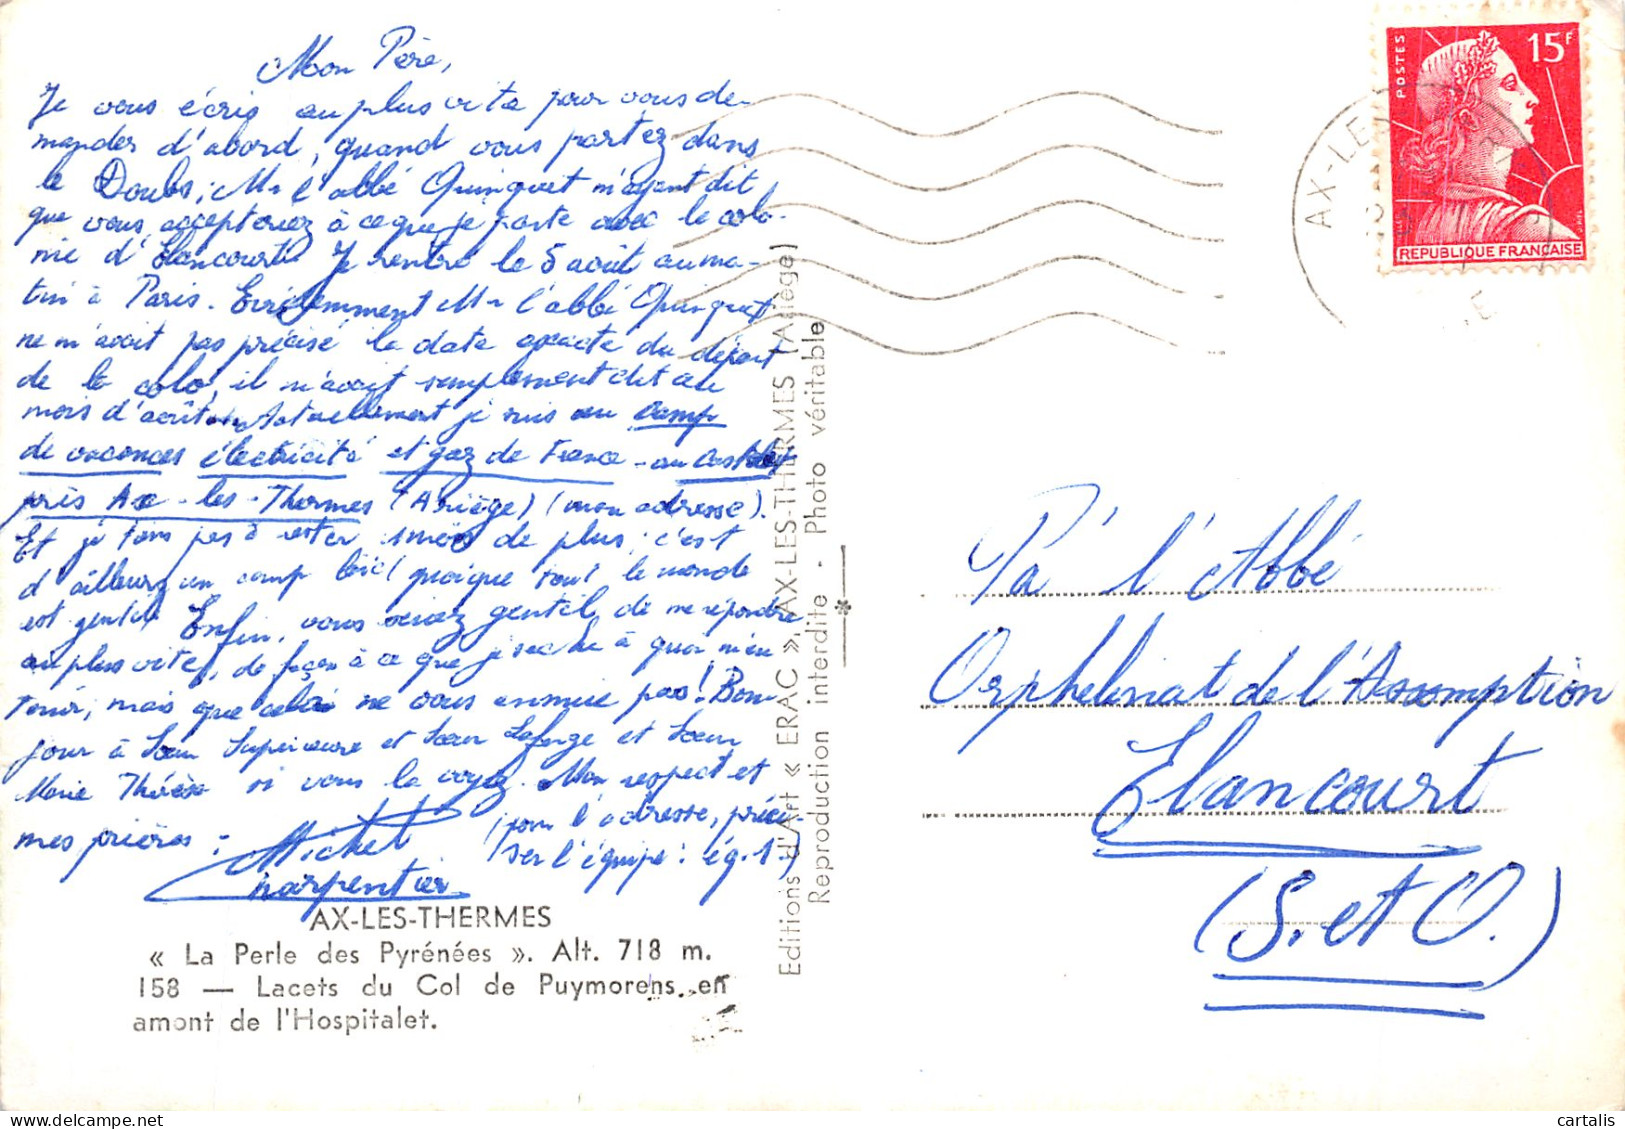 Mon Père,
Je vous écris au plus vite pour vous de-
mander d'abord, quand vous partez dans
le Doubs; Mr l'abbé Quinquet m'ayant dit
que vous accepteriez à ce que je parte avec la colo-
nie d'Elancourt. Je rentre le 5 août au ma-
tin à Paris. Evidemment Mr l'abbé Quinquet
ne m'avait pas précisé la date exacte du départ
de la colo, il m'avait simplement dit au
mois d'août. Actuellement je suis au camp
de vacances électricité et gaz de France - au
près Ax-les-Thermes (Ariège) (mon adresse).
Et je tiens pas à rester de plus; c'est
d'ailleurs un camp quoique tout le monde
est gentil. Enfin, vous seriez gentil de me répondre
au plus vite, de façon à ce que je sache à quoi m'en
tenir, mais que cela ne vous ennuie pas! Bon-
jour à Sœur Supérieure et Sœur Laforge et Sœur
Marie Thérèse si vous la voyez. Mon respect et
mes prières :
Michel
Charpentier
(pour l'adresse, préci-
ser l'équipe : ég. 1.)
AX-LES-THERMES
« La Perle des Pyrénées ». Alt. 718 m.
158 — Lacets du Col de Puymorens, en
amont de l'Hospitalet.
Editions d'Art « ERAC », AX-LES-THERMES (Ariège)
Reproduction interdite - Photo véritable
POSTES
15F
REPUBLIQUE FRANÇAISE
AX-LE
l'Abbé
Orphelinat de l'Assomption
Elancourt
(S. et O.)
cartalis